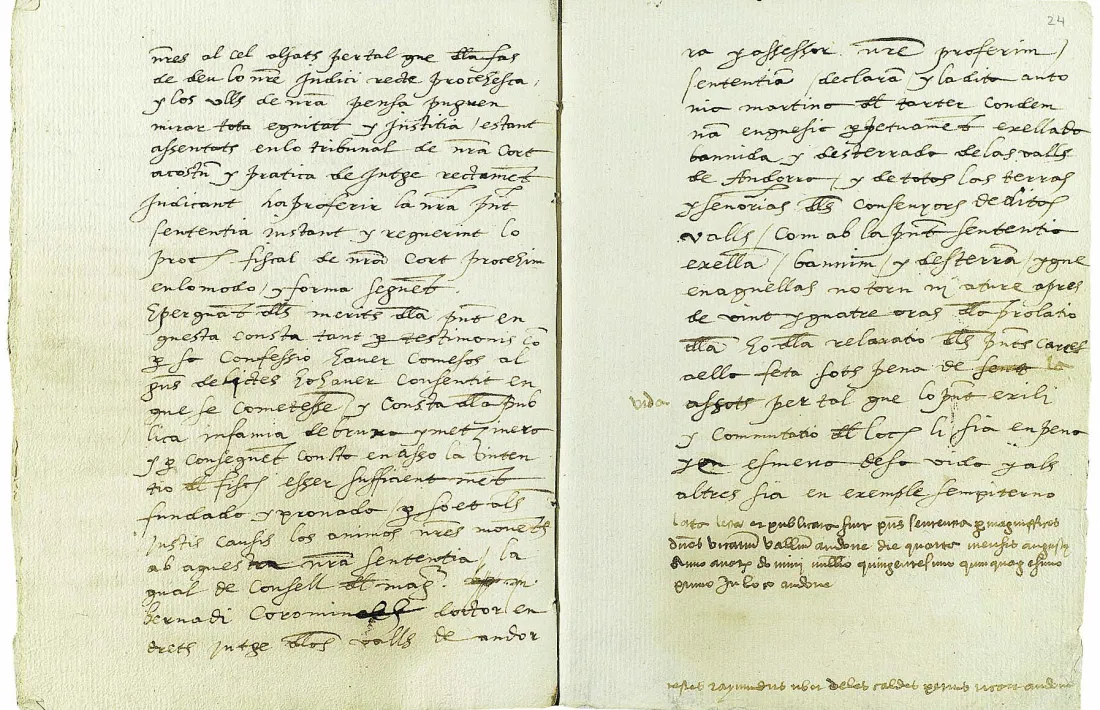 nres al cel alsats per tal que dla fas
de deu lo nre Judici recte procehesca,
y los ulls de nra pensa puguen
mirar tota equitat y Justitia, estant
assentats en lo tribunal de nra Cort
acostũ y pratica de Jutge rectamẽt
Judicant la proferir la nra pñt
sententia instant y requerint lo
proc. fiscal de nra Cort procehim
en lo modo, y forma seguẽt
E perquãt dls merits dla pñt en
questa consta tant p testimonis cõ
p sa Confessio haver Comesos al
guns delictes ho haver Consentit en
que se Cometesse, y Consta dla pub
lica infamia de bruxa y metzinera
y p conseguẽt consta en asso la inten
tio dl fisch esser sufficient mẽt
fundada y provada, p so et als
justis causis los animos nres movẽts
ab aquesta nra sententia, la
qual de Consell dl mag
bernadi Coromines doctor en
drets Jutge dlos valls de andor
24
ra y assessor nre proferim,
sententiã declarã y la dita anto
nia martina dl tarter Condem
nã en quesic ppetuamẽt exellada
bannida y desterrada de las valls
de Andorra, y de totas las terras
y señorias dls Consenyors de ditas
valls, Com ab la pñt sententia
exellã, bannim, y desterrã, y que
en aquellas no torn ni ature apres
de vint y quatre oras dla prolatio
dlla ho dla relaratio dls pñts
a ella feta sots pena de la
vida
assots per tal que lo pñt exili
y Commutatio dl loch li sia en pena
y en esmena de sa vida y als
altres sia en exemple sempiterno
lata lecta et publicata fuit pñs sententia p magnificos
dños vicariũ valliũ andorre die quarto mensis augusti
anno a nat.e domini millio quingentesimo quinquagesimo
primo In loco andorre
testes raymundus de les caldes